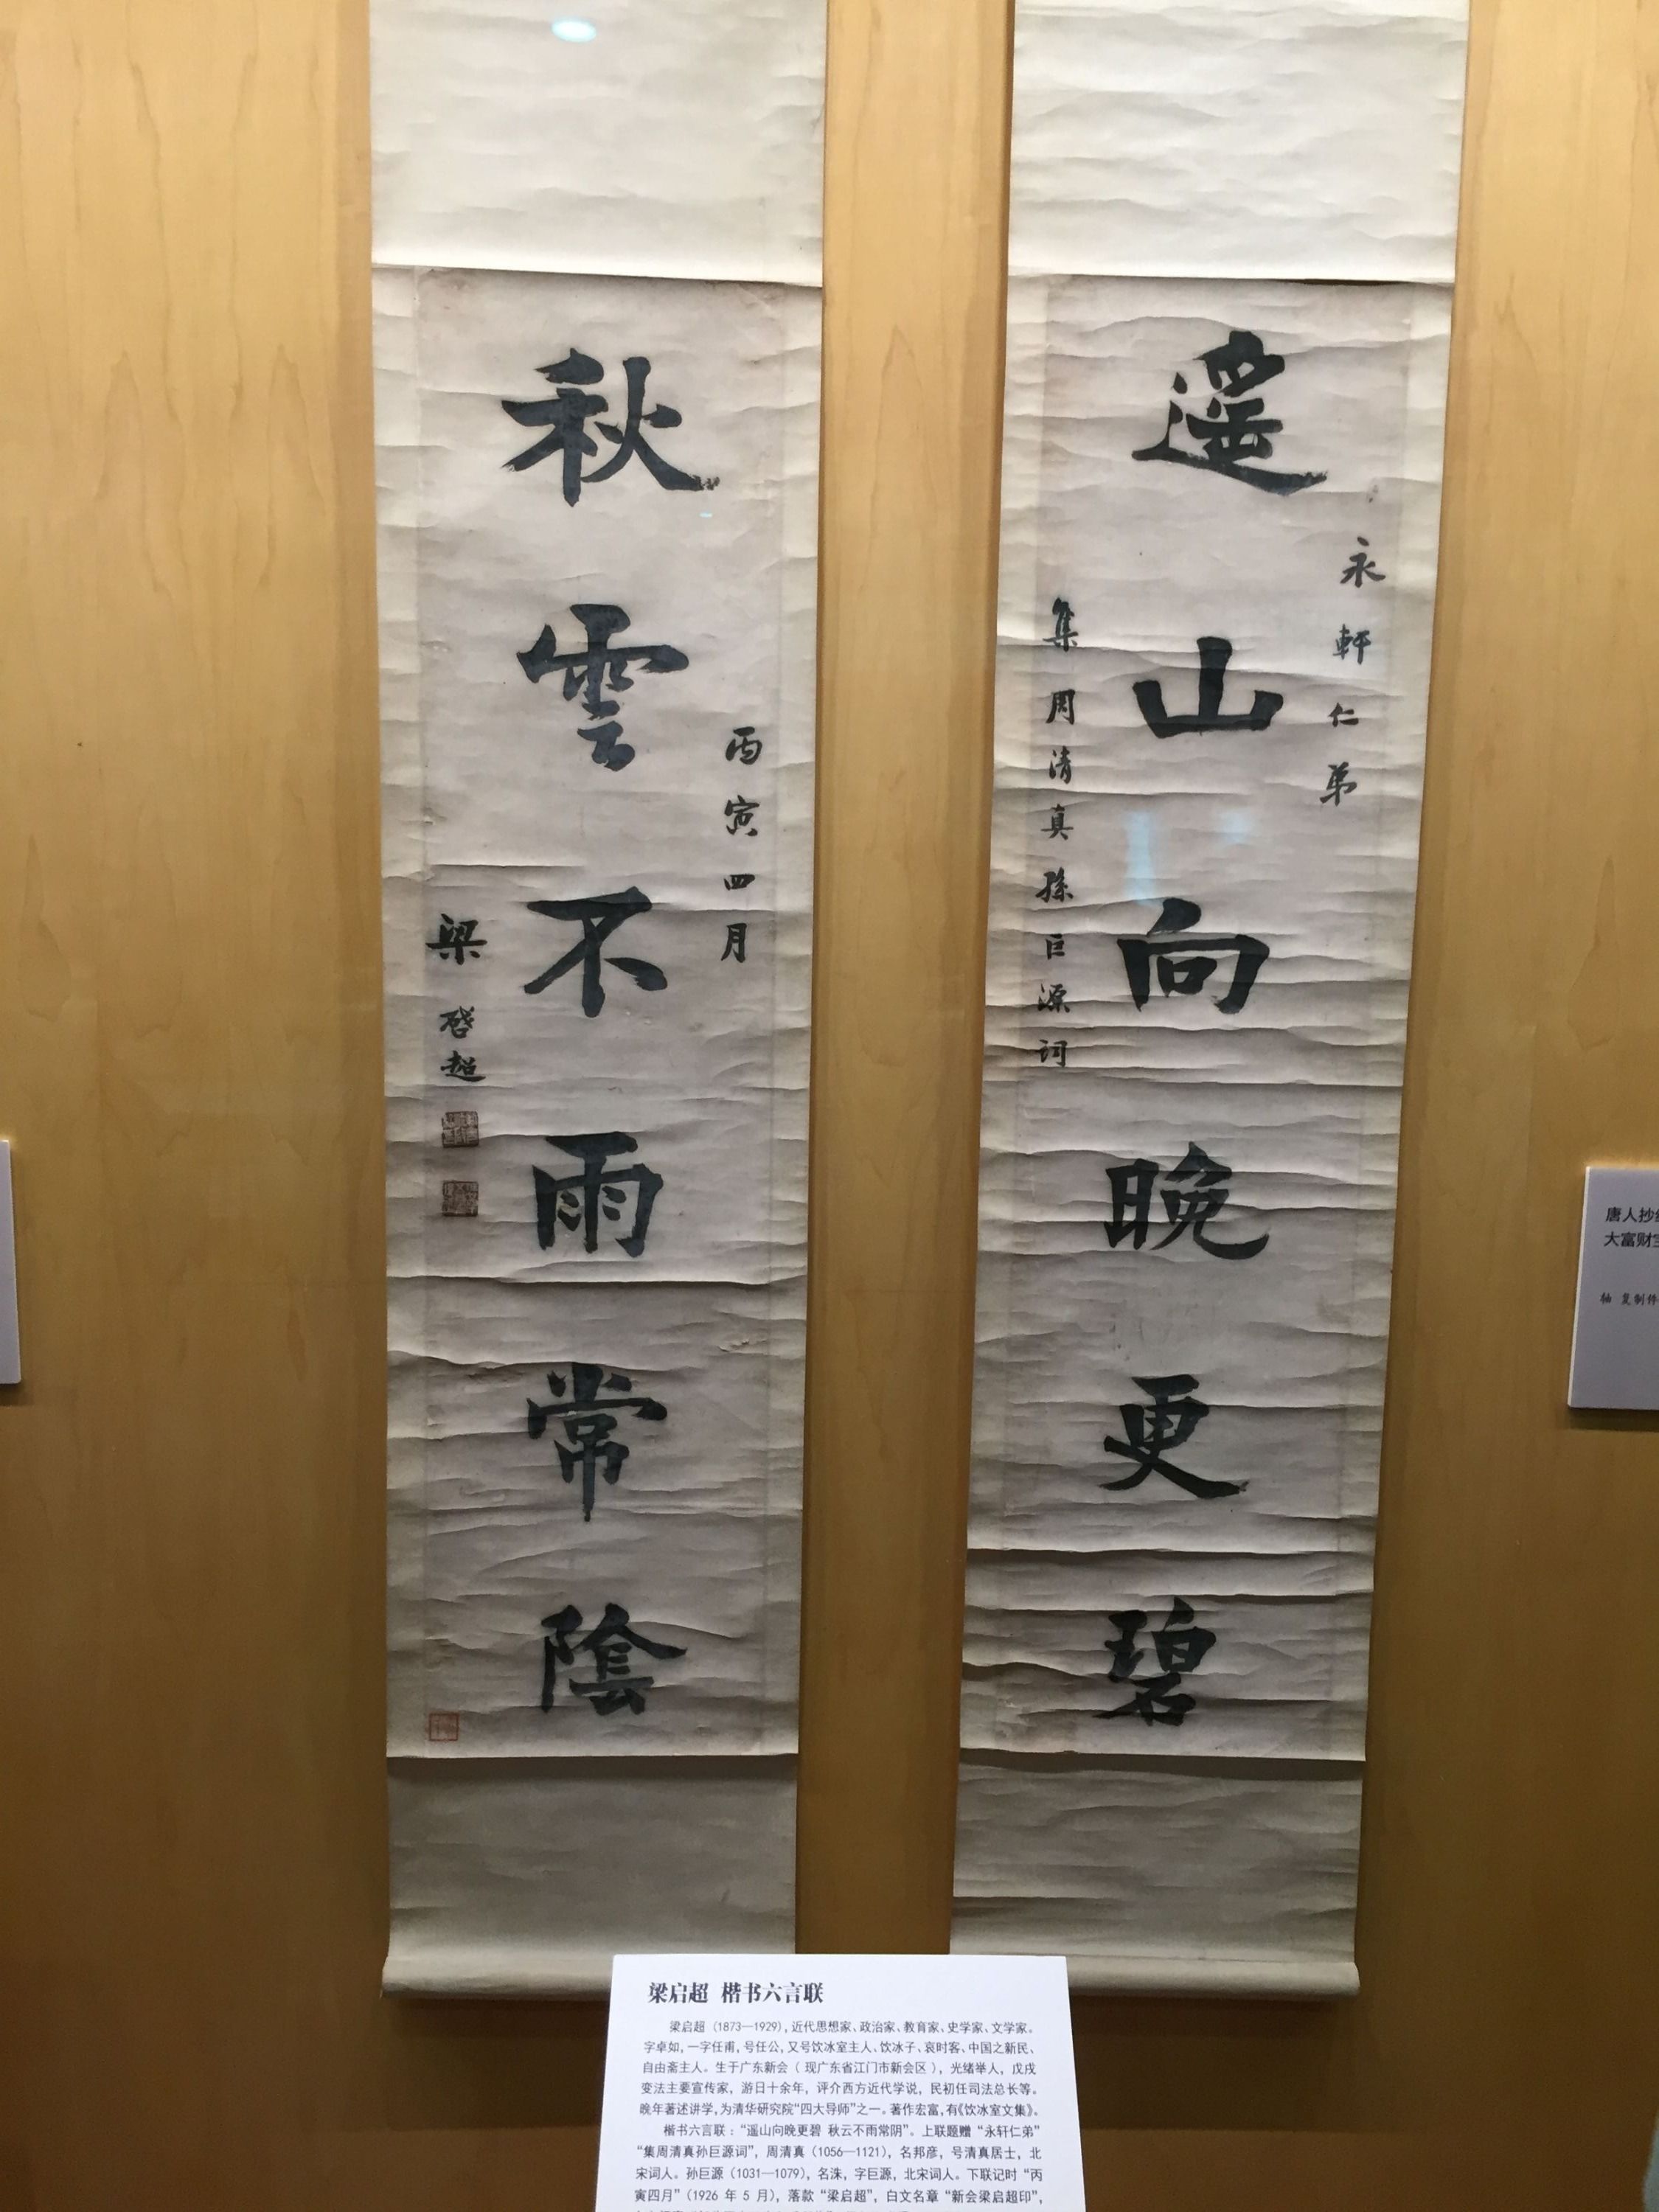 遥山向晚更碧
永軒仁弟
集周清真孫巨源詞
秋雲不雨常陰
丙寅四月
梁啓超
梁启超 楷书六言联
梁启超（1873—1929），近代思想家、政治家、教育家、史学家、文学家。
字卓如，一字任甫，号任公，又号饮冰室主人、饮冰子、哀时客、中国之新民、
自由斋主人。生于广东新会（现广东省江门市新会区），光绪举人，戊戌
变法主要宣传家，游日十余年，评介西方近代学说，民初任司法总长等。
晚年著述讲学，为清华研究院“四大导师”之一。著作宏富，有《饮冰室文集》。
楷书六言联：“遥山向晚更碧 秋云不雨常阴”。上联题赠“永轩仁弟”
“集周清真孙巨源词”，周清真（1056—1121），名邦彦，号清真居士，北
宋词人。孙巨源（1031—1079），名洙，字巨源，北宋词人。下联记时“丙
寅四月”（1926 年 5 月），落款“梁启超”，白文名章“新会梁启超印”，
唐人抄
大富财
轴 复制件